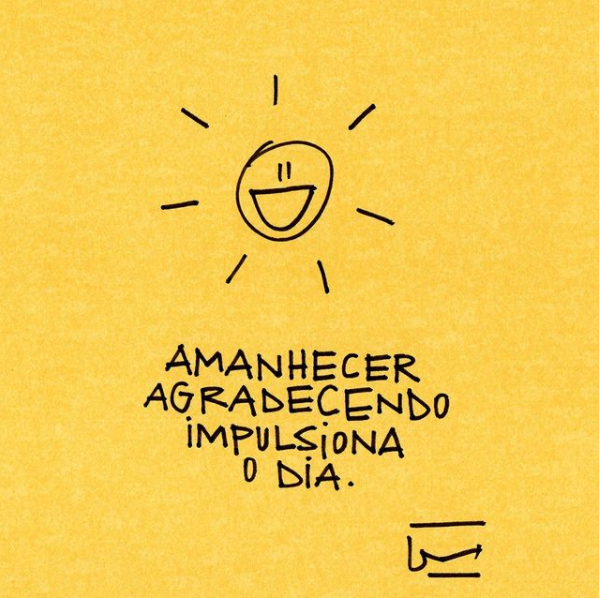 AMANHECER
AGRADECENDO
IMPULSIONA
O DIA.